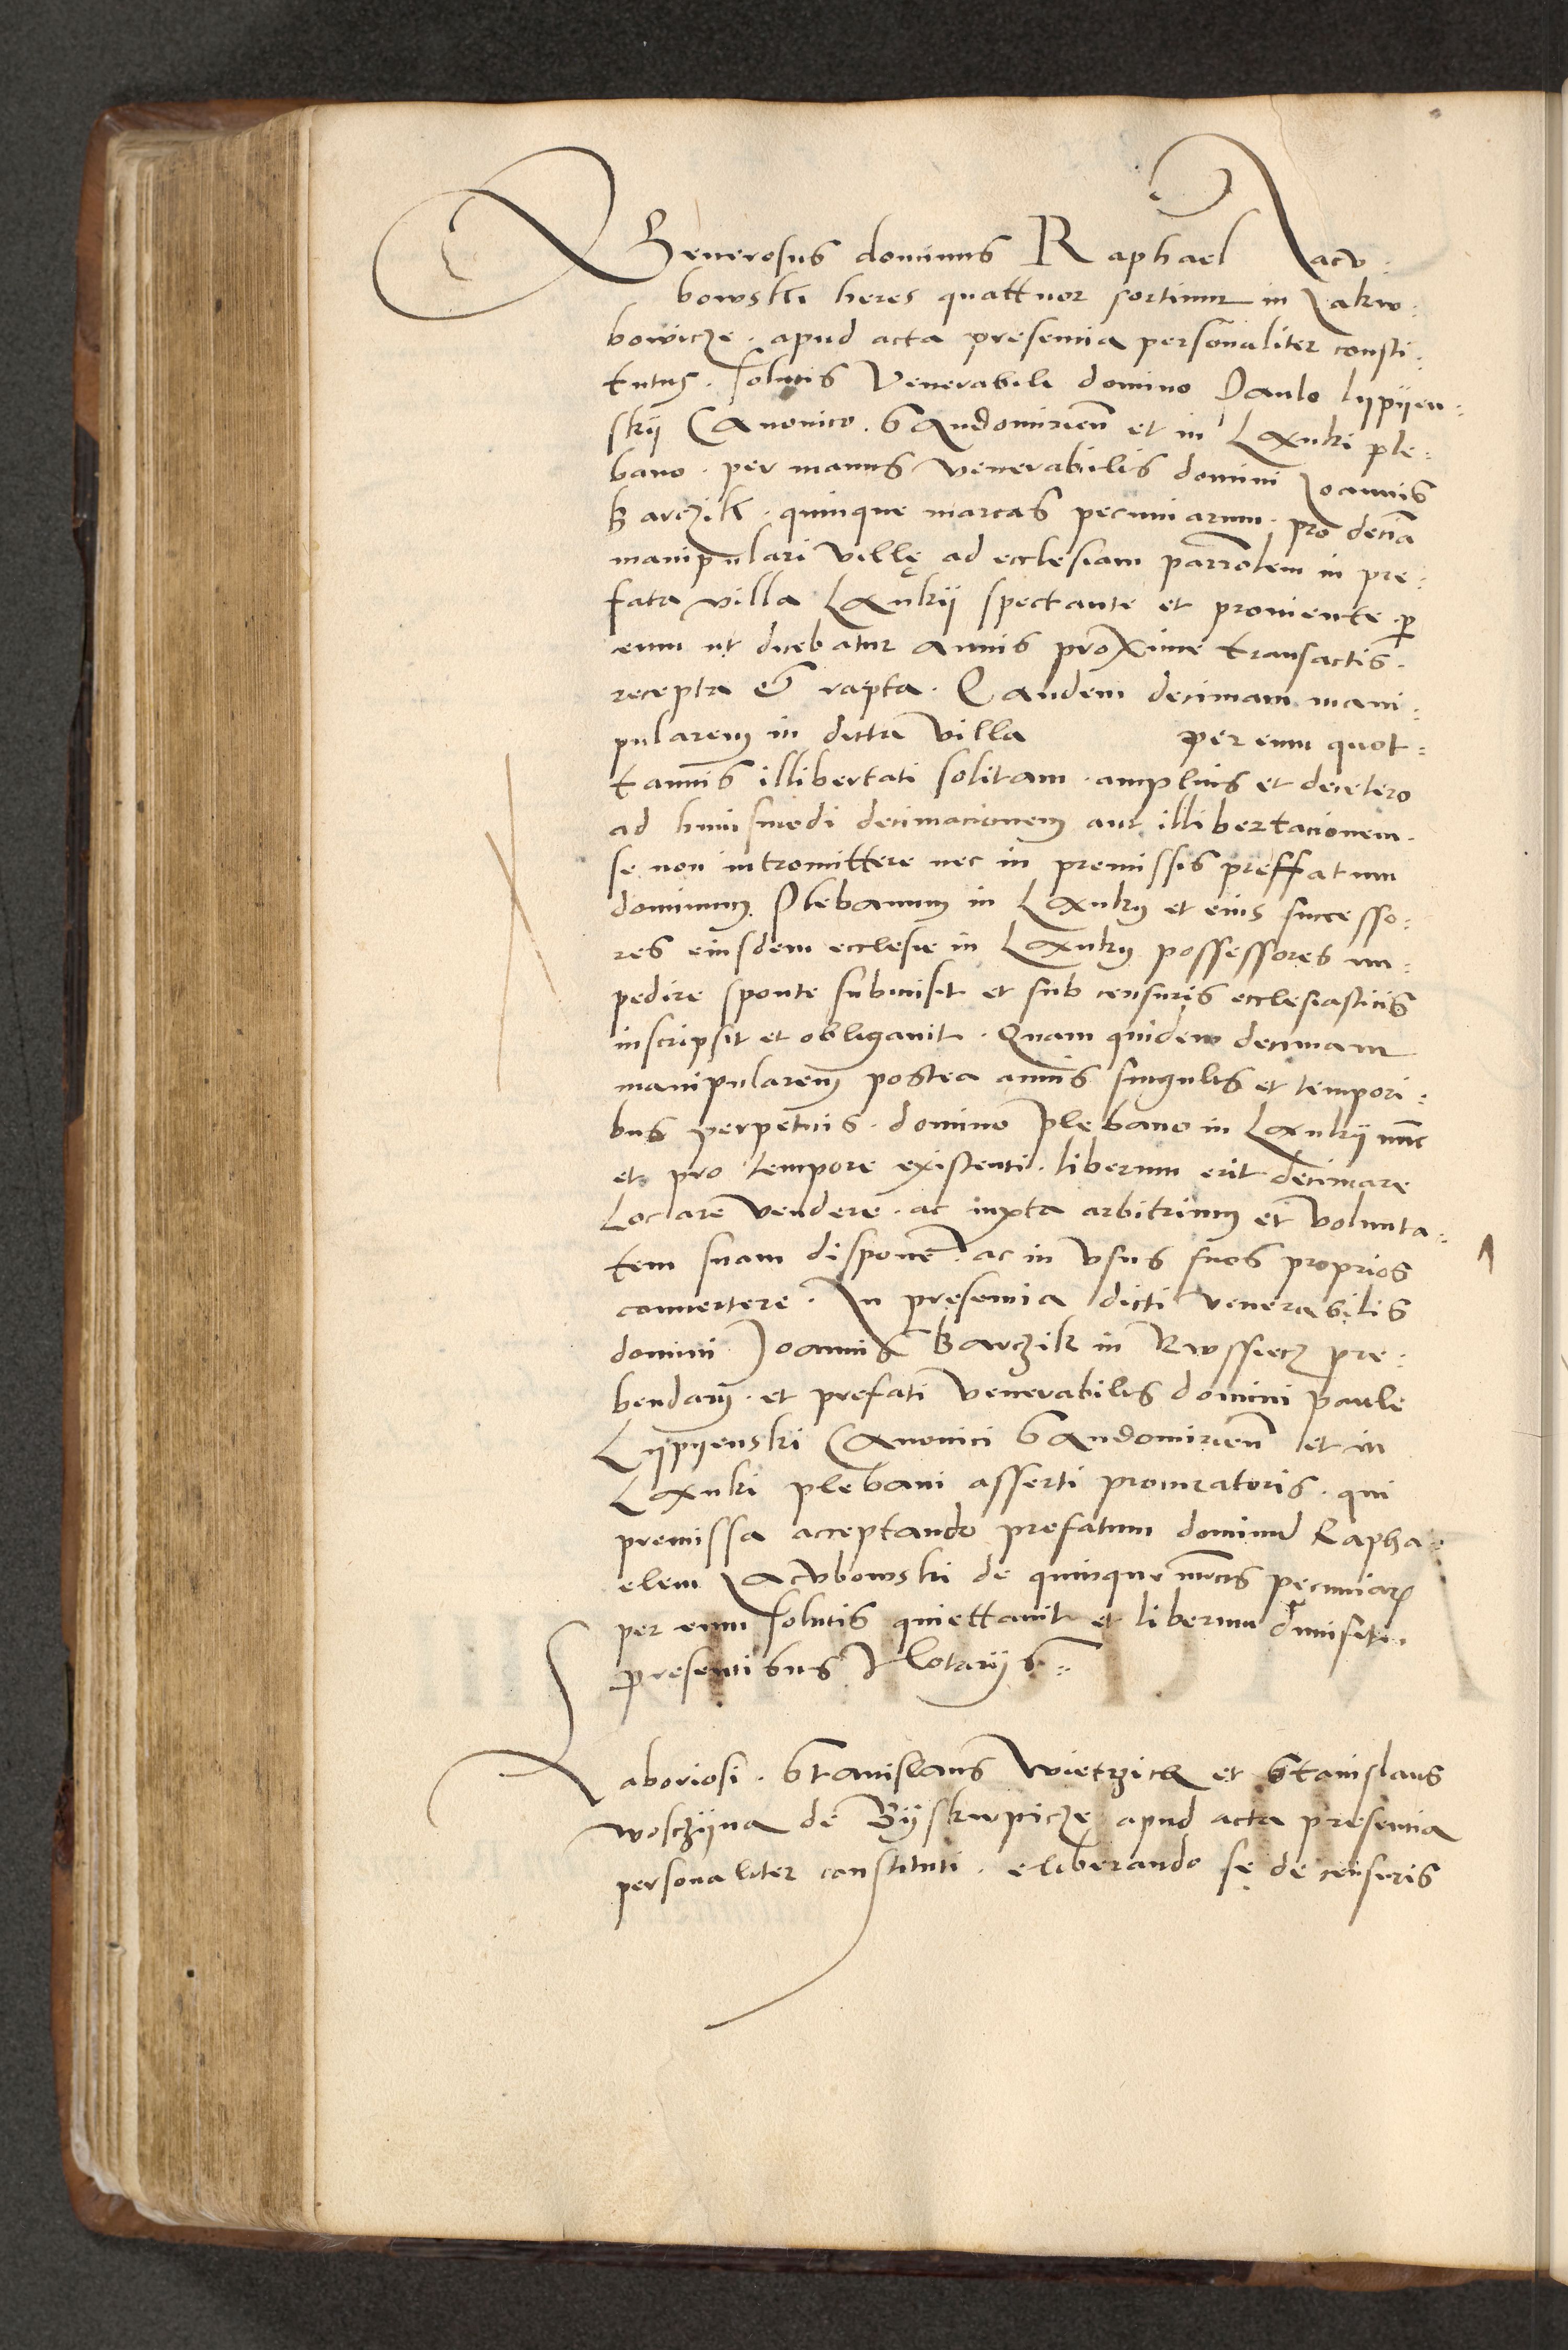 Generosus dominus Raphael Jacu-
bowski heres quattuor sortium in Jakw-
bowicze. apud acta presentia personaliter consti-
tutus. solutis Venerabili domino Paulo lypyen-
skij Canonico. Sandomirien et in Lanki ple-
bano. per manus venerabilis domini Joannis
Barczik. quinque marcas pecuniarum. pro decia
manipulari villę ad ecclesiam parrolem in pre-
fata villa Lankij spectante et proniente p
eum ut dicebatur annis proxime transactis.
recepta et rapta. Eandem decimam mani-
pularem in dicta villa per eum quot-
tannis illibertati solitam. amplius et decetero
ad huiusmodi decimacionem aut illibertacionem.
se non intromittere nec in premissis preffatum
dominum Plebanum in Lanky et eius successo-
res eiusdem ecclesie in Lanky possessores im-
pedire sponte submisit et sub censuris ecclesiasticis
inscripsit et obligauit. Quam quidem decimam
manipularem postea annis singulis et tempori-
bus perpetuis. domino plebano in Lankij nunc
et pro tempore existenti. liberum erit decimare
Locare vendere. ac iuxta arbitrium et volunta-
tem suam disponere. ac in vsus suos proprios
conuertere. In presentia dicti venerabilis
domini Joannis Barczik in Rwssiecz pre-
bendarij. et prefati venerabilis domini Pauli
Lypyenski Canonici Sandomirien et in
Lanki plebani asserti procuratoris. qui
premissa acceptando prefatum dominum Rapha-
elem Jacubowski de quinque mrcis pecuniar
per eum solutis quiettauit et liberum dimisit.
presentibus Notarijs
Laboriosi. Stanislaus Wietrzick et Stanislaus
wosczyna de Byskwpicze apud acta presentia
personaliter constituti. eliberando se de censuris